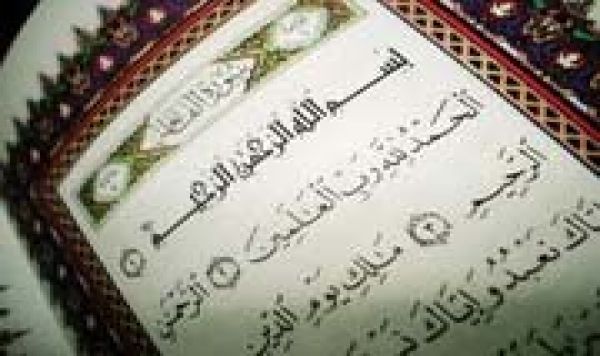 سورة الفاتحة
بِسْمِ اللَّهِ الرَّحْمَٰنِ الرَّحِيمِ ١
الْحَمْدُ لِلَّهِ رَبِّ الْعَٰلَمِينَ ٢ الرَّحْمَٰنِ
الرَّحِيمِ ٣ مَٰلِكِ يَوْمِ الدِّينِ
نَعْبُدُ وَإِيَّاكَ